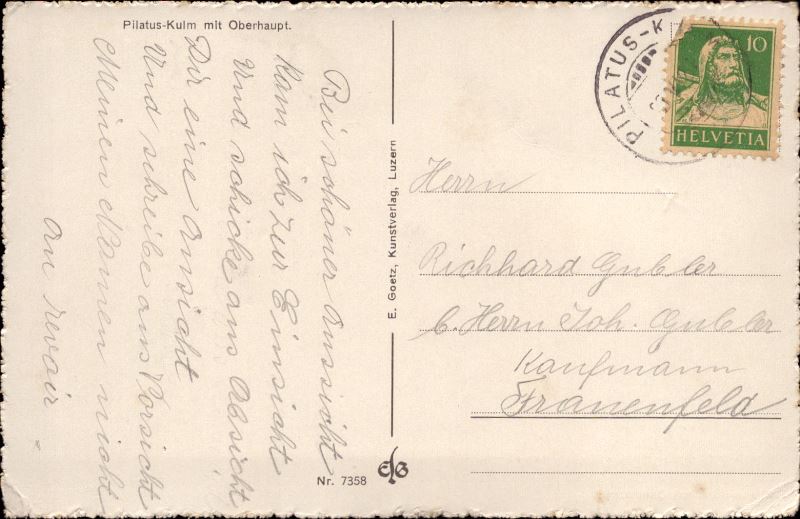 Pilatus-Kulm mit Oberhaupt.
Bei schöner Aussicht
Kam ich zur Einsicht
Und schicke aus Absicht
Dir eine Ansicht
Und schreibe aus Vorsicht
Meinen Namen nicht
au revoir
E. Goetz, Kunstverlag, Luzern
Nr. 7358
PILATUS-K
10
HELVETIA
Herrn
Richhard Gubler
b. Herrn Joh. Gubler
Kaufmann
Frauenfeld